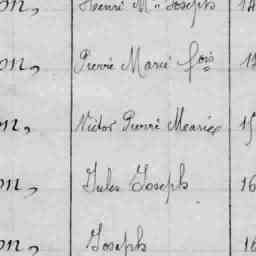 on, Henri M. Joseph 14
on, Pierre Marie fois
on, Victor Pierre Mearie 15
on, Jules Joseph 16
on, Joseph